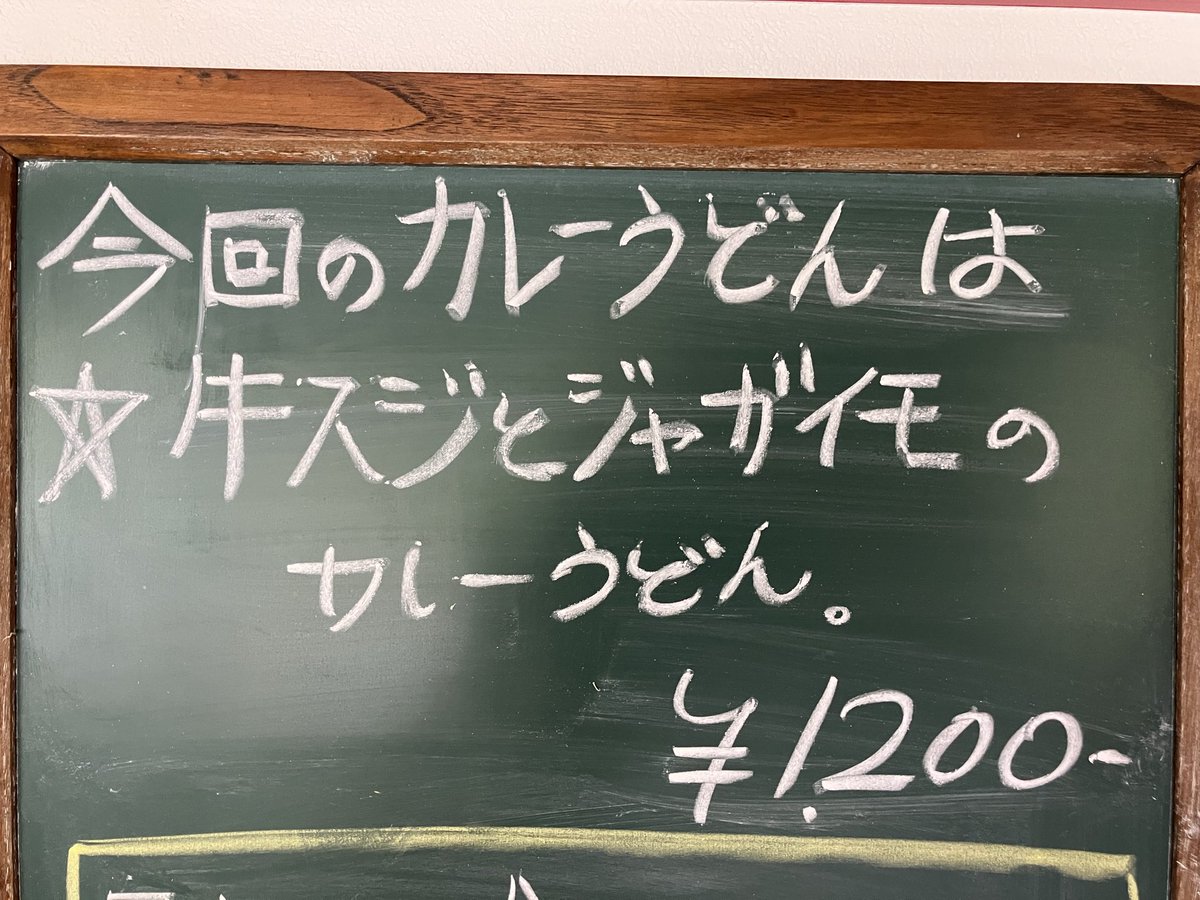 今回のカレーうどんは
☆牛スジとジャガイモの
カレーうどん。
¥1,200-